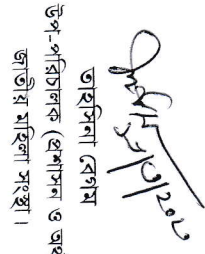 তাহমিনা বেগম
উপ-পরিচালক (প্রশাসন ও অর্থ
জাতীয় মহিলা সংস্থা।